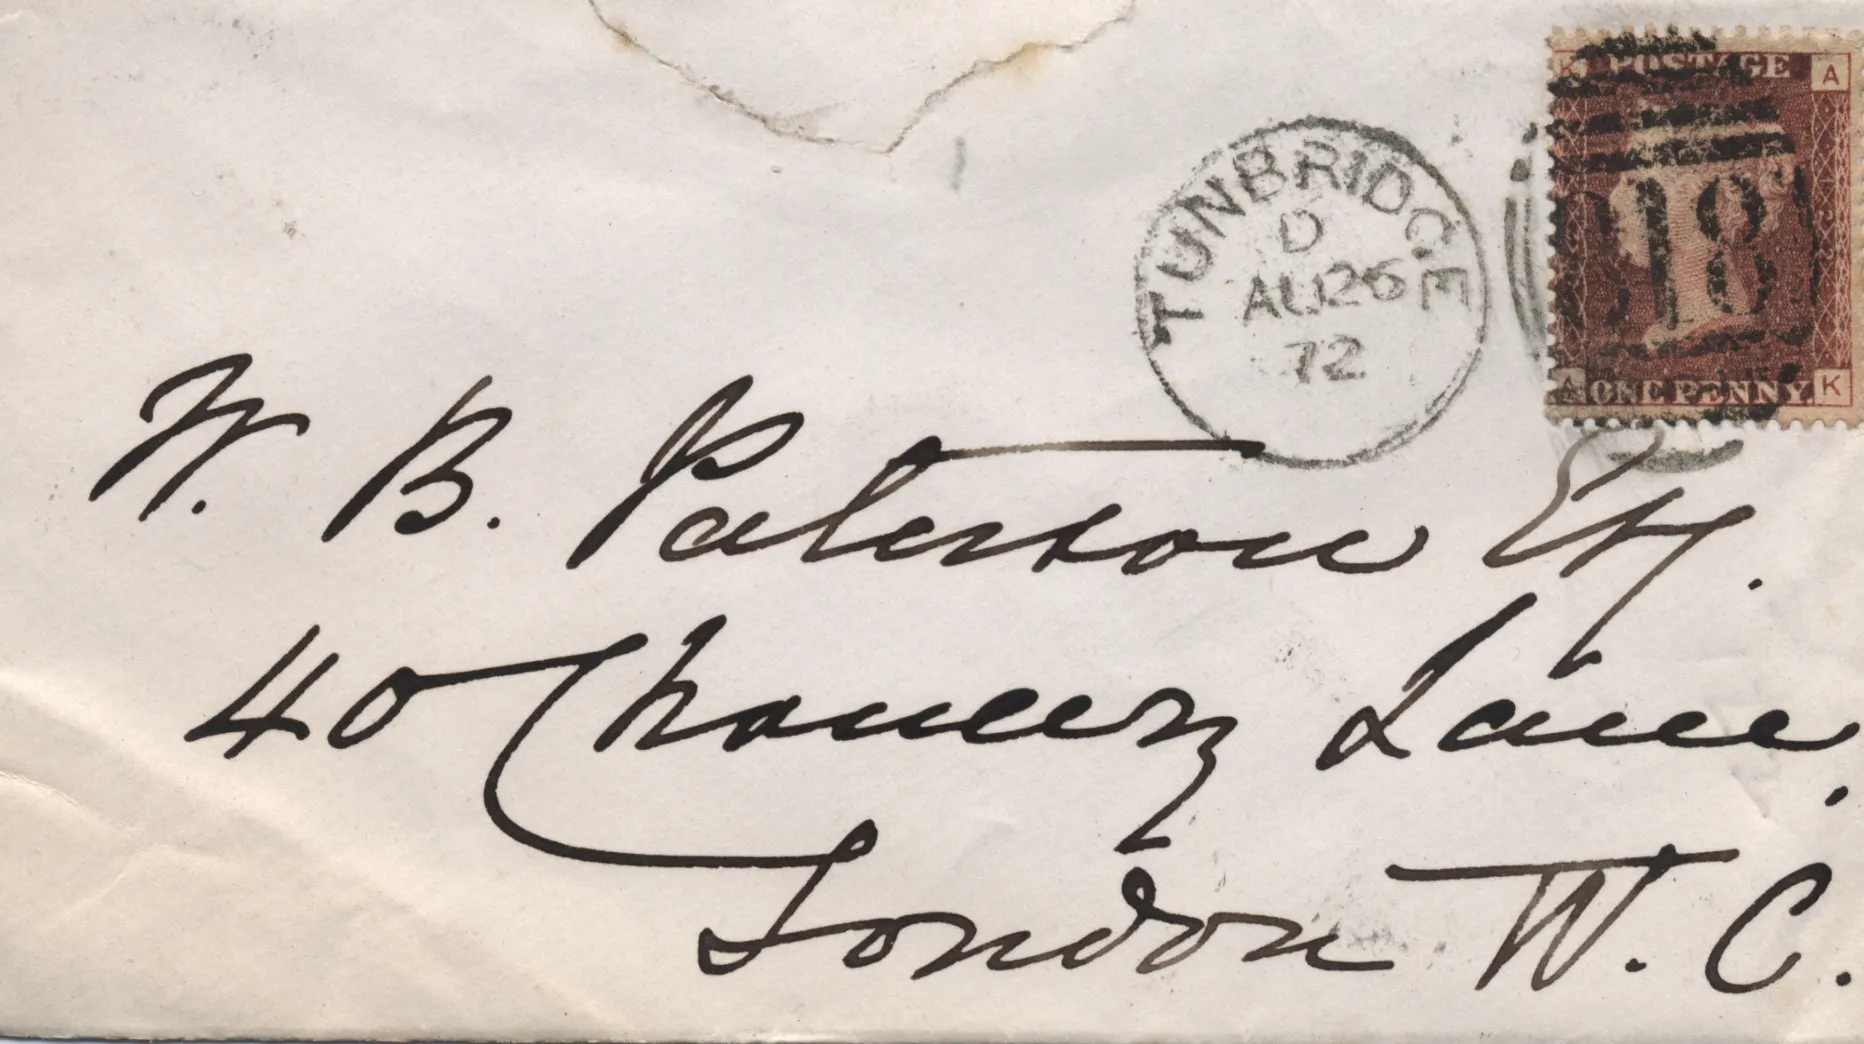 K POSTAGE A
TUNBRIDGE
D
AU 26
72
A ONE PENNY K
W. B. Paterson Esq.
40 Chancery Lane.
London W. C.